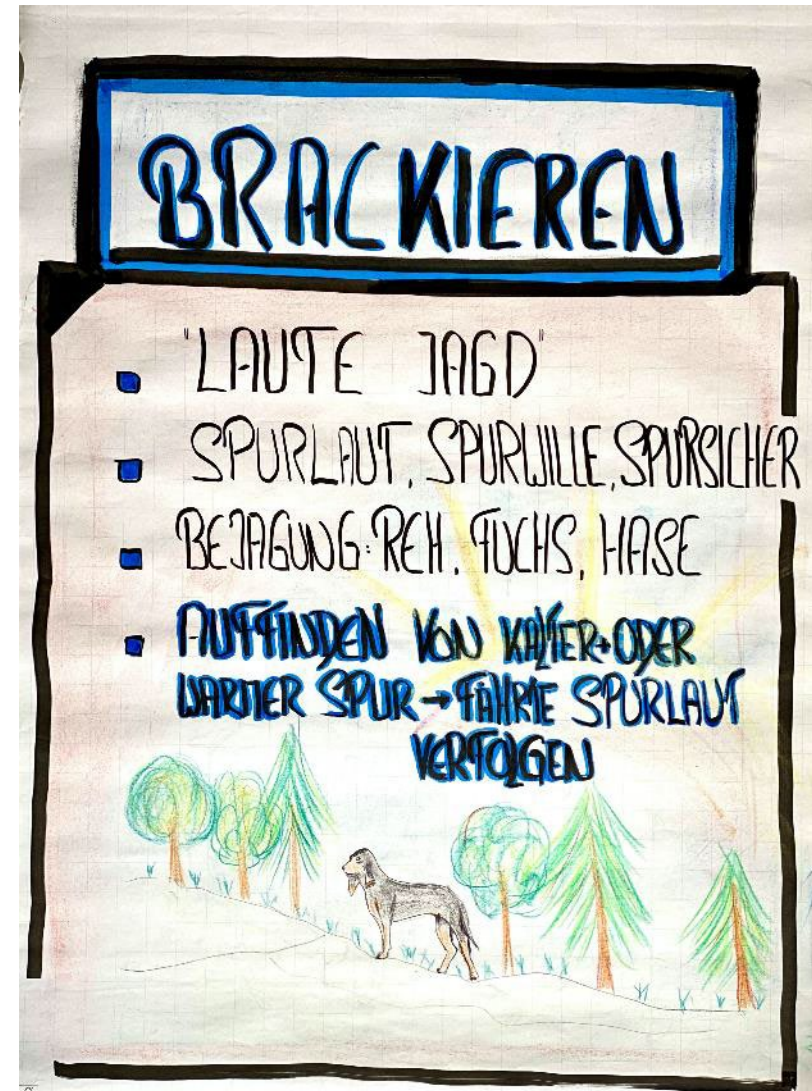 BRACKIEREN
"LAUTE JAGD"
SPURLAUT, SPURWILLE, SPURSICHER
BEJAGUNG: REH, FUCHS, HASE
AUFFINDEN VON KALTER+ODER
WARMER SPUR → FÄHRTE SPURLAUT
VERFOLGEN